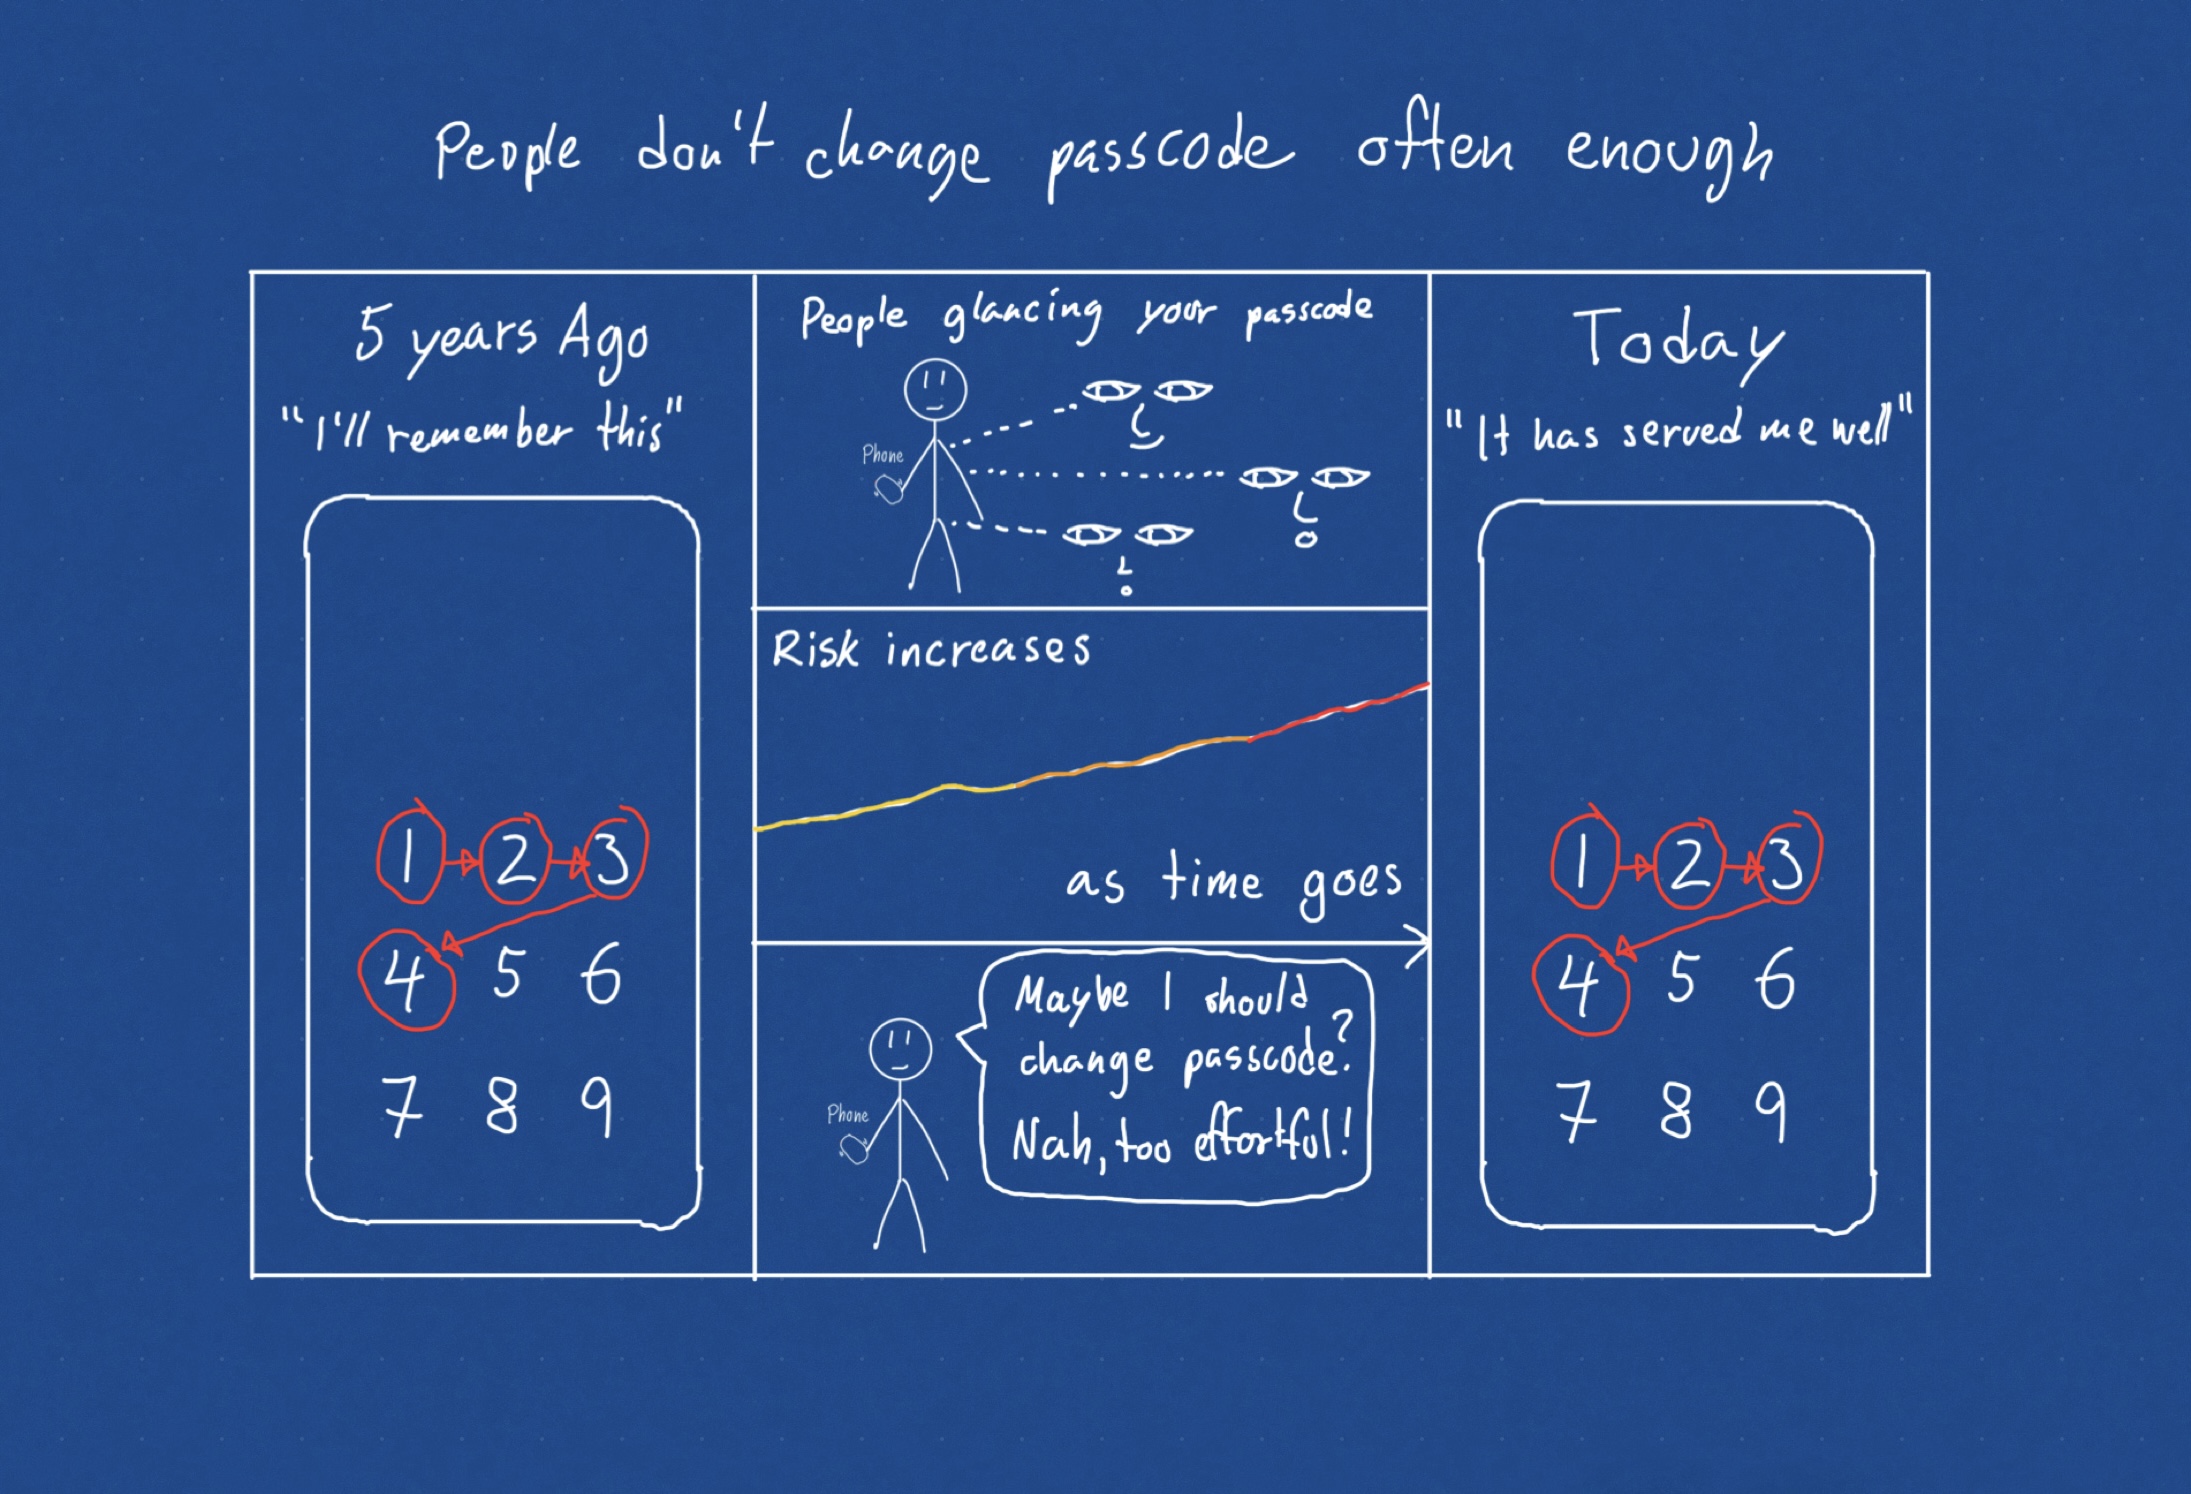 People don't change passcode often enough
5 years Ago
"I'll remember this"
1 2 3
4 5 6
7 8 9
People glancing your passcode
Phone
Risk increases
as time goes
Phone
Maybe I should
change passcode?
Nah, too effortful!
Today
"It has served me well"
1 2 3
4 5 6
7 8 9